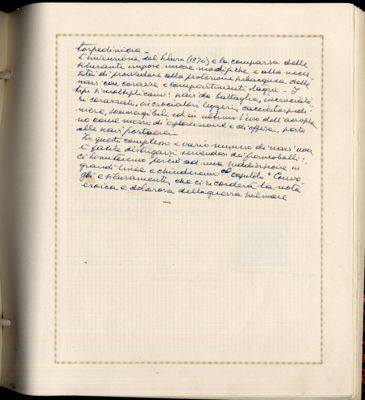 torpediniera -
L'invenzione del siluro (1870) e la comparsa delle
siluranti impose nuove modifiche e alla neces
sità di provvedere alla protezione subacquea delle
navi con corazze e compartimenti stagni - I
tipi si moltiplicano: navi da battaglia, incrociato
ri corazzati, incrociatori leggeri, cacciatorpedi
niere, sommergibili ed in ultimo l'uso dell'aeropla
no come mezzo di esplorazione e di offesa, porto
alle navi portaerei
In questo complesso e vario numero di navi non
è facile districarsi servendosi dei francobolli;
ci limiteremo perciò ad una suddivisione in
grandi linee e chiuderemo col capitolo "Convo
gli e siluramenti, che ci ricorderà la nota
eroica e dolorosa della guerra sul mare